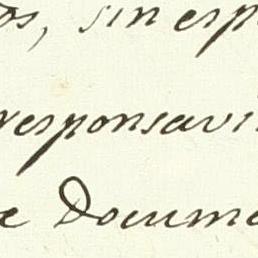 os, sin esp
responsavi
e Docume